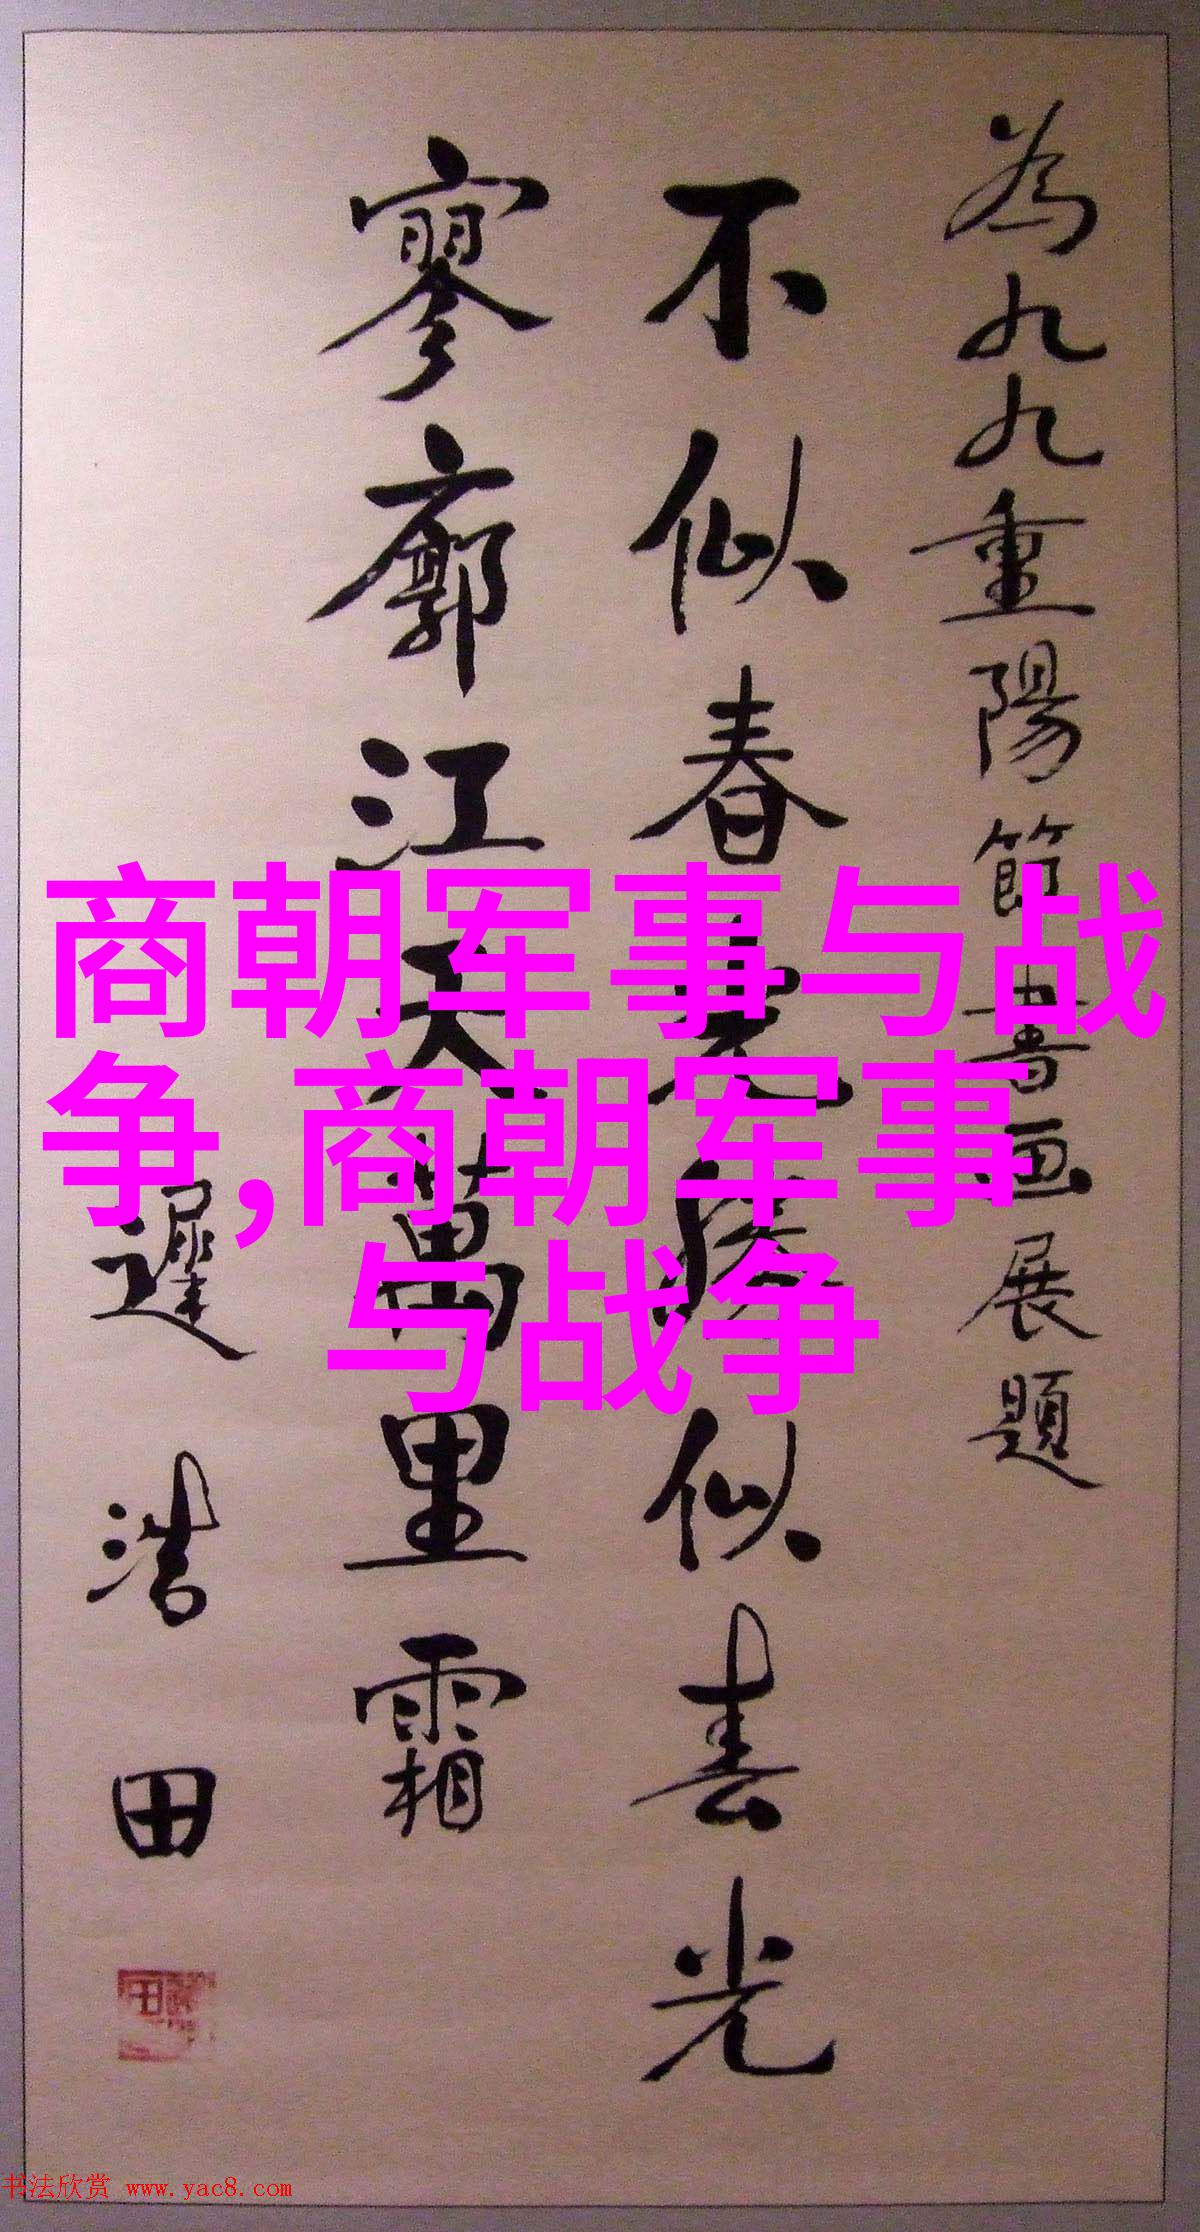 為九九重陽節書画展題
不似春光勝似春光
寥廓江天萬里霜
遲浩田
商朝军事与战
争,商朝军事
与战争
书法欣赏 www.yac8.com